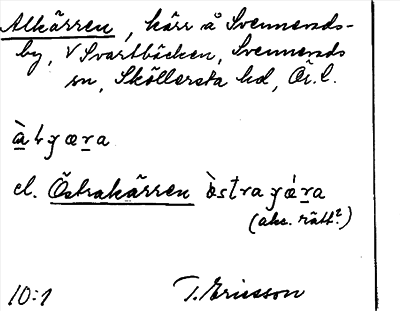 Alkärren, kärr å Svennevads-
by, V Svartbäcken, Svennevads
sn, Sköllersta hd, Ör. l.
el. Östrakärren
(akc. rätt?)
10:1 T. Ericsson